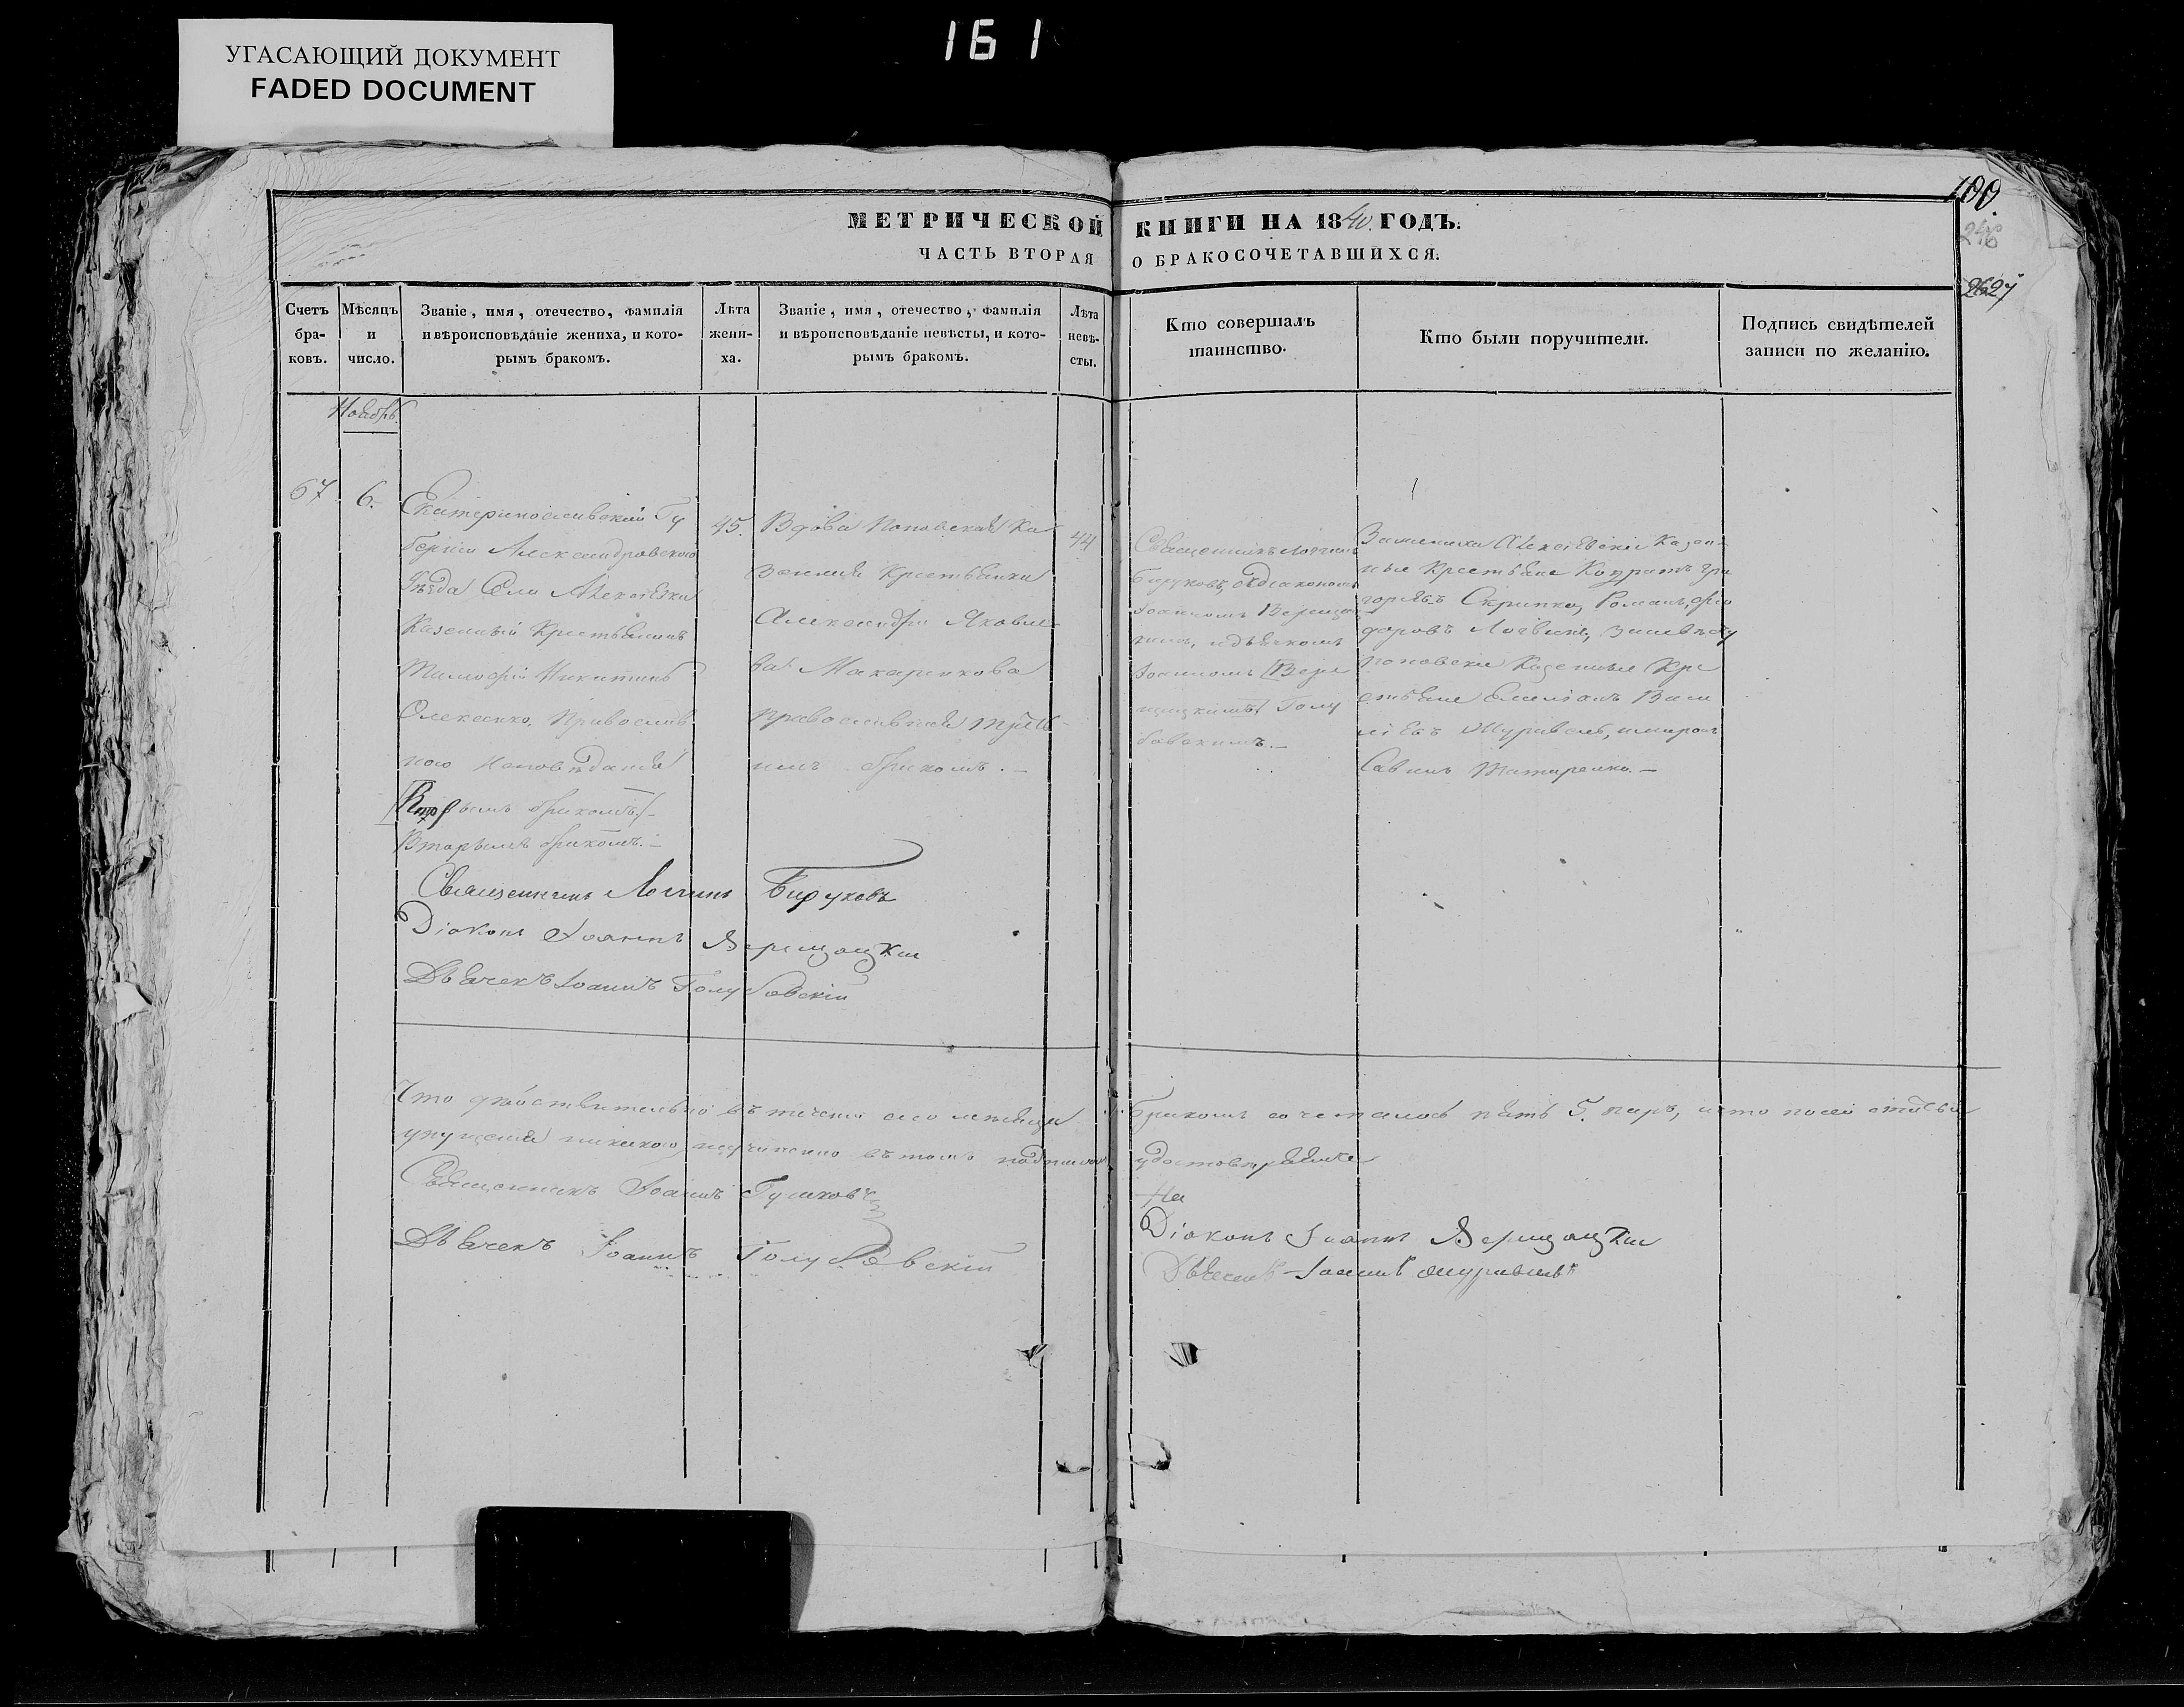 161
УГАСАЮЩИЙ ДОКУМЕНТ
FADED DOCUMENT
100
246
МЕТРИЧЕСКОЙ КНИГИ НА 1840. ГОДЪ.
ЧАСТЬ ВТОРАЯ О БРАКОСОЧЕТАВШИХСЯ.
Счетъ бра- ковъ.
Мѣсяцъ и число.
Званіе, имя, отечество, фамилія
и вѣроисповѣданіе жениха, и кото-
рымъ бракомъ.
Лѣта жени- ха.
Званіе, имя, отечество, фамилія
и вѣроисповѣданіе невѣсты, и кото-
рымъ бракомъ.
Лѣта невѣ- сты.
Кто совершалъ
таинство.
Кто были поручители.
Подпись свидѣтелей
записи по желанію.
Ноябрь.
67 6.
Екатеринославской Гу
берніи Александровского
уѣзда Села Алексѣевки
Казенный Крестьянинъ
Тимофей Никитинъ
Олексенко, Православ
ного исповѣданія
Вторымъ бракомъ.
Вторымъ бракомъ.
45.
Вдова Поповская Ка
зенная Крестьянка
Александра Яковле
ва Макаренкова
православная треть
имъ бракомъ.
44
Священникъ Логгинъ
Бируковъ, съ діакономъ
Іоанномъ Верещац
кимъ, и дьячкомъ
Іоанномъ Вере
щацкимъ Голу
бовскимъ.
Алексѣевскіе Казен
ные Крестьяне Кондратъ Гри
горьевъ Скрипка, Романъ Фео
доровъ Логвин, за невѣсту
поповскіе Казенные Кре
стьяне Емельянъ Васи
ліевъ Журавель, Миронъ
Савинъ Татаренко.
Священникъ Логгинъ Бируковъ
Діаконъ Іоаннъ Верещацкій
Дьячекъ Іоаннъ Голубовскій
Что дѣйствительно въ теченіи сего мѣсяца бракомъ сочеталось пять 5. паръ, и что по сей статьѣ
упущенія никакого не учинено въ томъ подписомъ удостовѣряемъ
Священникъ Іоаннъ
Діаконъ Іоаннъ Верещацкій
Дьячекъ Іоаннъ Голубовскій
Іоаннъ Журавель